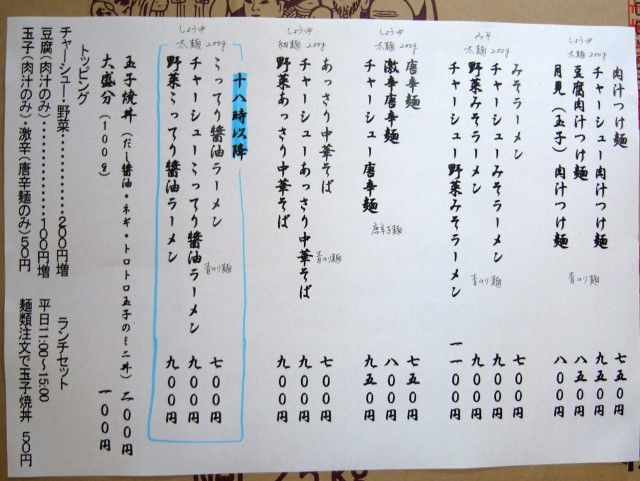 しょうゆ
太麺 200g
肉汁つけ麺 七五〇円
チャーシュー肉汁つけ麺 九五〇円
豆腐肉汁つけ麺 八五〇円
月見(玉子)肉汁つけ麺 八〇〇円
青のり麺
みそ
太麺 200g
みそラーメン 七〇〇円
チャーシューみそラーメン 九〇〇円
野菜みそラーメン 九〇〇円
チャーシュー野菜みそラーメン 一一〇〇円
青のり麺
しょうゆ
太麺 200g
唐辛麺 七五〇円
激辛唐辛麺 八〇〇円
チャーシュー唐辛麺 九五〇円
唐辛子麺
しょうゆ
細麺 200g
あっさり中華そば 七〇〇円
チャーシューあっさり中華そば 九〇〇円
野菜あっさり中華そば 九〇〇円
青のり麺
しょうゆ
太麺 200g
十八時以降
こってり醬油ラーメン 七〇〇円
チャーシューこってり醬油ラーメン 九〇〇円
野菜こってり醬油ラーメン 九〇〇円
青のり麺
玉子焼丼(だし醤油・ネギ・トロトロ玉子のミニ丼) 二〇〇円
大盛分(100g) 一〇〇円
トッピング
チャーシュー・野菜………………200円増
豆腐(肉汁のみ)………………100円増
玉子(肉汁のみ)・激辛(唐辛麺のみ)50円
ランチセット
平日11:00〜15:00
麺類注文で玉子焼丼 50円